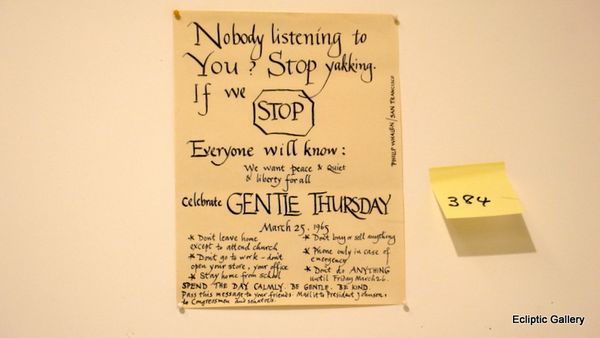 Nobody listening to
You? Stop yakking.
If we
STOP
Everyone will know:
We want peace & Quiet
& liberty for all
celebrate GENTLE THURSDAY
March 25, 1965
* Don't leave home
except to attend church
* Don't go to work - don't
open your store, your office
* Stay home from school
* Don't buy or sell anything
* Phone only in case of
emergency
* Don't do ANYTHING
until Friday March 26.
SPEND THE DAY CALMLY. BE GENTLE. BE KIND.
Pass this message to your friends. Mail it to President Johnson,
to Congressmen and senators.
PHILIP WHALEN / SAN FRANCISCO
384
Ecliptic Gallery